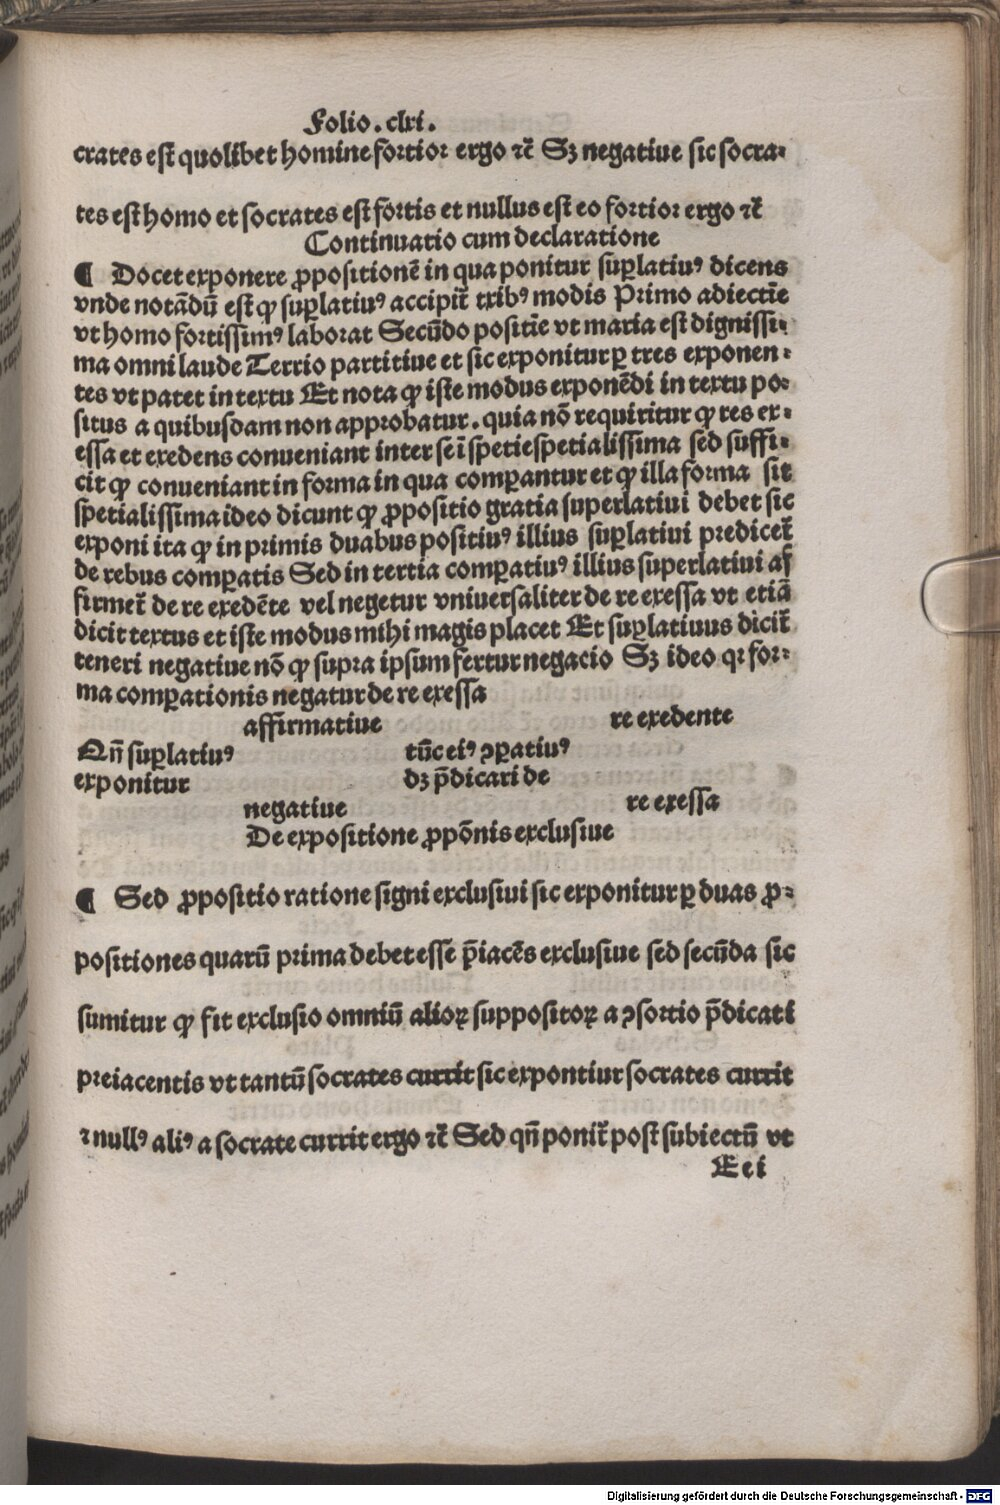 Folio. clxi.
crates est quolibet homine fortior ergo ⁊c̄ Sꝫ negatiue sic socra-
tes est homo et socrates est fortis et nullus est eo fortior ergo ⁊c̄
Continuatio cum declaratione
¶ Docet exponere ꝓpositionē in qua ponitur suꝑlatiuꝰ dicens
vnde notādū est ꝙ suꝑlatiuꝰ accipit̄ tribꝰ modis Primo adiectīe
vt homo fortissimꝰ laborat Secūdo positīe vt maria est dignissi-
ma omni laude Terrio partitiue et sic exponitur ꝑ tres exponen-
tes vt patet in textu Et nota ꝙ iste modus exponēdi in textu po-
situs a quibusdam non approbatur. quia nō requiritur ꝙ res ex-
essa et exedens conueniant inter se ī spetie spetialissima sed suffi-
cit ꝙ conueniant in forma in qua comꝑantur et ꝙ illa forma sit
spetialissima ideo dicunt ꝙ ꝓpositio gratia superlatiui debet sic
exponi ita ꝙ in primis duabus positiuꝰ illius suꝑlatiui predicet̄
de rebus comꝑatis Sed in tertia comꝑatiuꝰ illius superlatiui af
firmet̄ de re exedēte vel negetur vniuersaliter de re exessa vt etiā
dicit textus et iste modus mihi magis placet Et suꝑlatiuus dicit̄
teneri negatiue nō ꝙ supra ipsum fertur negacio Sꝫ ideo qꝛ for-
ma comꝑationis negatur de re exessa
affirmatiue re exedente
Qn̄ suꝑlatiuꝰ tūc eiꝰ ꝯꝑatiuꝰ
exponitur dꝫ p̄dicari de
negatiue re exessa
De expositione ꝓpōnis exclusiue
¶ Sed ꝓpositio ratione signi exclusiui sic exponitur ꝑ duas ꝓ-
positiones quarū prima debet esse p̄iacēs exclusiue sed secūda sic
sumitur ꝙ fit exclusio omniū alioꝝ suppositoꝝ a ꝯsortio p̄dicati
preiacentis vt tantū socrates currit sic expontiur socrates currit
⁊ nullꝰ aliꝰ a socrate currit ergo ⁊c̄ Sed qn̄ ponit̄ post subiectū vt
Eei
Digitalisierung gefördert durch die Deutsche Forschungsgemeinschaft - DFG